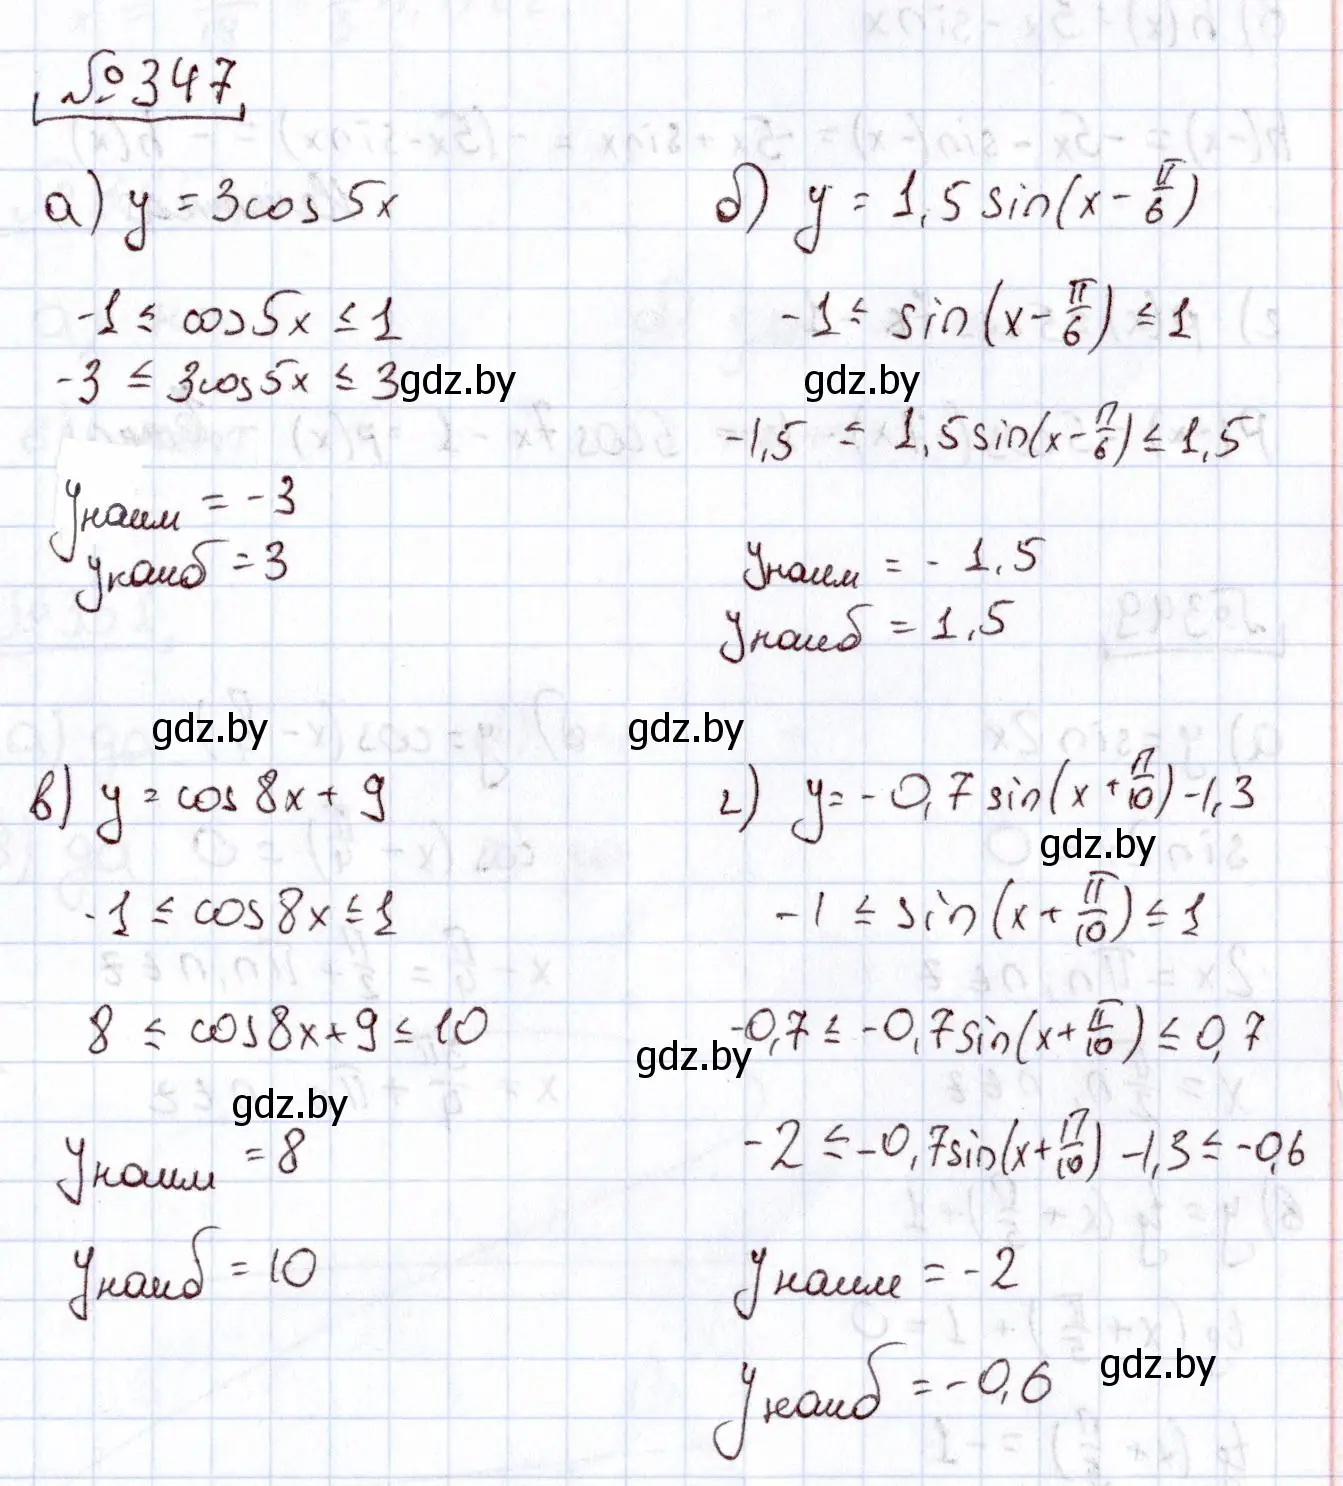 №347
а) y = 3cos 5x
-1 ≤ cos 5x ≤ 1
-3 ≤ 3cos 5x ≤ 3
gdz.by
yнаим = -3
yнаиб = 3
б) y = 1,5 sin(x - π/6)
-1 ≤ sin(x - π/6) ≤ 1
gdz.by
-1,5 ≤ 1,5 sin(x - π/6) ≤ 1,5
yнаим = -1,5
yнаиб = 1,5
gdz.by
gdz.by
в) y = cos 8x + 9
-1 ≤ cos 8x ≤ 1
8 ≤ cos 8x + 9 ≤ 10
gdz.by
yнаим = 8
yнаиб = 10
г) y = -0,7 sin(x + π/10) - 1,3
gdz.by
-1 ≤ sin(x + π/10) ≤ 1
-0,7 ≤ -0,7 sin(x + π/10) ≤ 0,7
gdz.by
-2 ≤ -0,7 sin(x + π/10) - 1,3 ≤ -0,6
yнаим = -2
yнаиб = -0,6
gdz.by